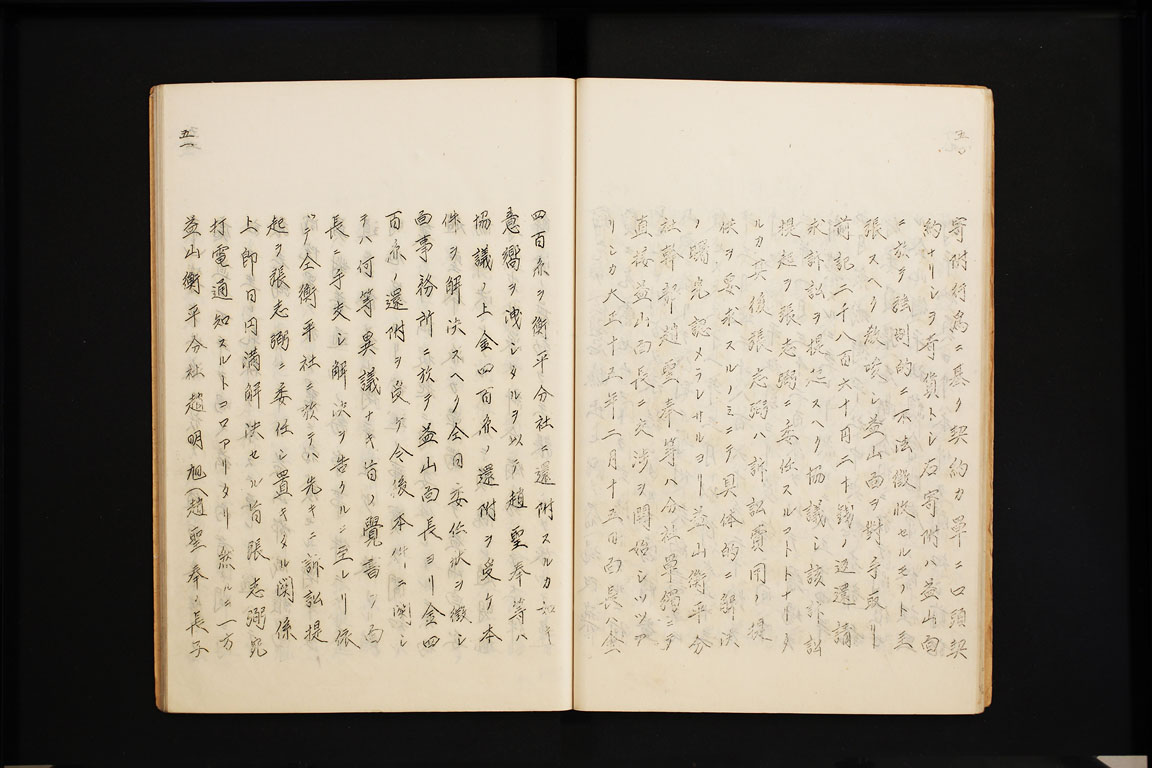 五〇
寄附行為ニ基ク契約カ單ニ口頭契
約ナリシヲ奇貨トシ右寄附ハ益山面
ニ於テ強制的ニ不法徴收セルモノト主
張スヘク教唆シ益山面ヲ對手取リ
前記二千八百六十円二十銭ノ返還請
求訴訟ヲ提起スヘク協議シ該訴訟
提起ヲ張志弼ニ委任スルコトトナリタ
ルカ其後張志弼ハ訴訟費用ノ提
供ヲ要求スルノミニテ具体的ニ解決
ノ曙光認メラレサルヨリ益山衡平分
社幹部趙聖奉等ハ分社單獨ニテ
直接益山面長ニ交渉ヲ開始シツツア
リシカ大正十五年二月十五日面長ハ金
四百余ヲ衡平分社ニ還附スルカ如キ
意嚮ヲ洩シタルヲ以テ趙聖奉等ハ
協議ノ上金四百余ノ還附ヲ受ケ本
件ヲ解決スヘク全日委任状ヲ徴シ
面事務所ニ於テ益山面長ヨリ金四
百余ノ還附ヲ受ケ今後本件ニ関シ
テハ何等異議ナキ旨ノ覺書ヲ面
長ニ手交シ解決ヲ告クルニ至レリ依
ツテ全衡平社ニ於テハ先キニ訴訟提
起ヲ張志弼ニ委任シ置キタル関係
上即日円満解決セル旨張志弼宛
打電通知スルトコロアリタリ 然ルニ一方
益山衡平分社趙明旭(趙聖奉ノ長子
五一